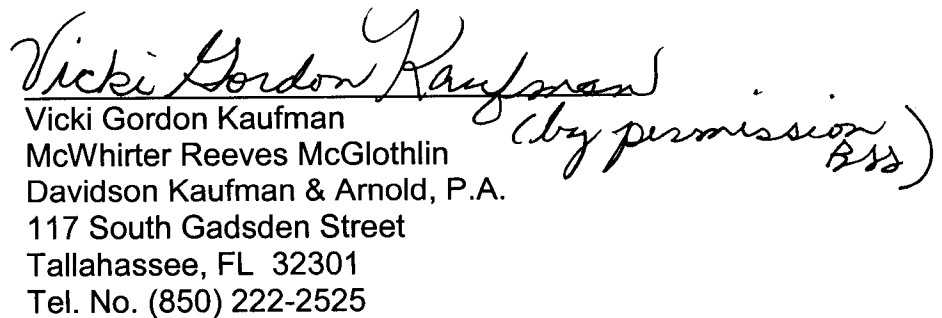 Vicki Gordon Kaufman
(by permission
BSS)
Vicki Gordon Kaufman
McWhirter Reeves McGlothlin
Davidson Kaufman & Arnold, P.A.
117 South Gadsden Street
Tallahassee, FL 32301
Tel. No. (850) 222-2525